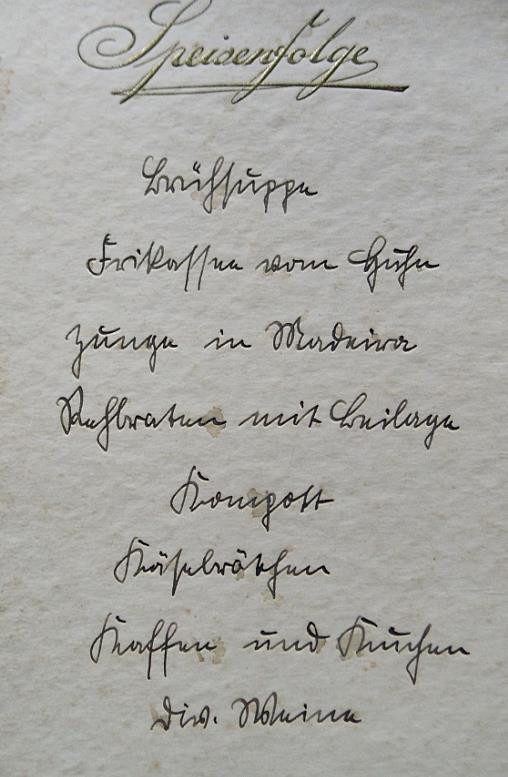 Speisenfolge
Brühsuppe
Frikassee vom Huhn
Zunge in Madeira
Rehbraten mit Beilage
Kompott
Käsebrötchen
Kaffee und Kuchen
Div. Weine